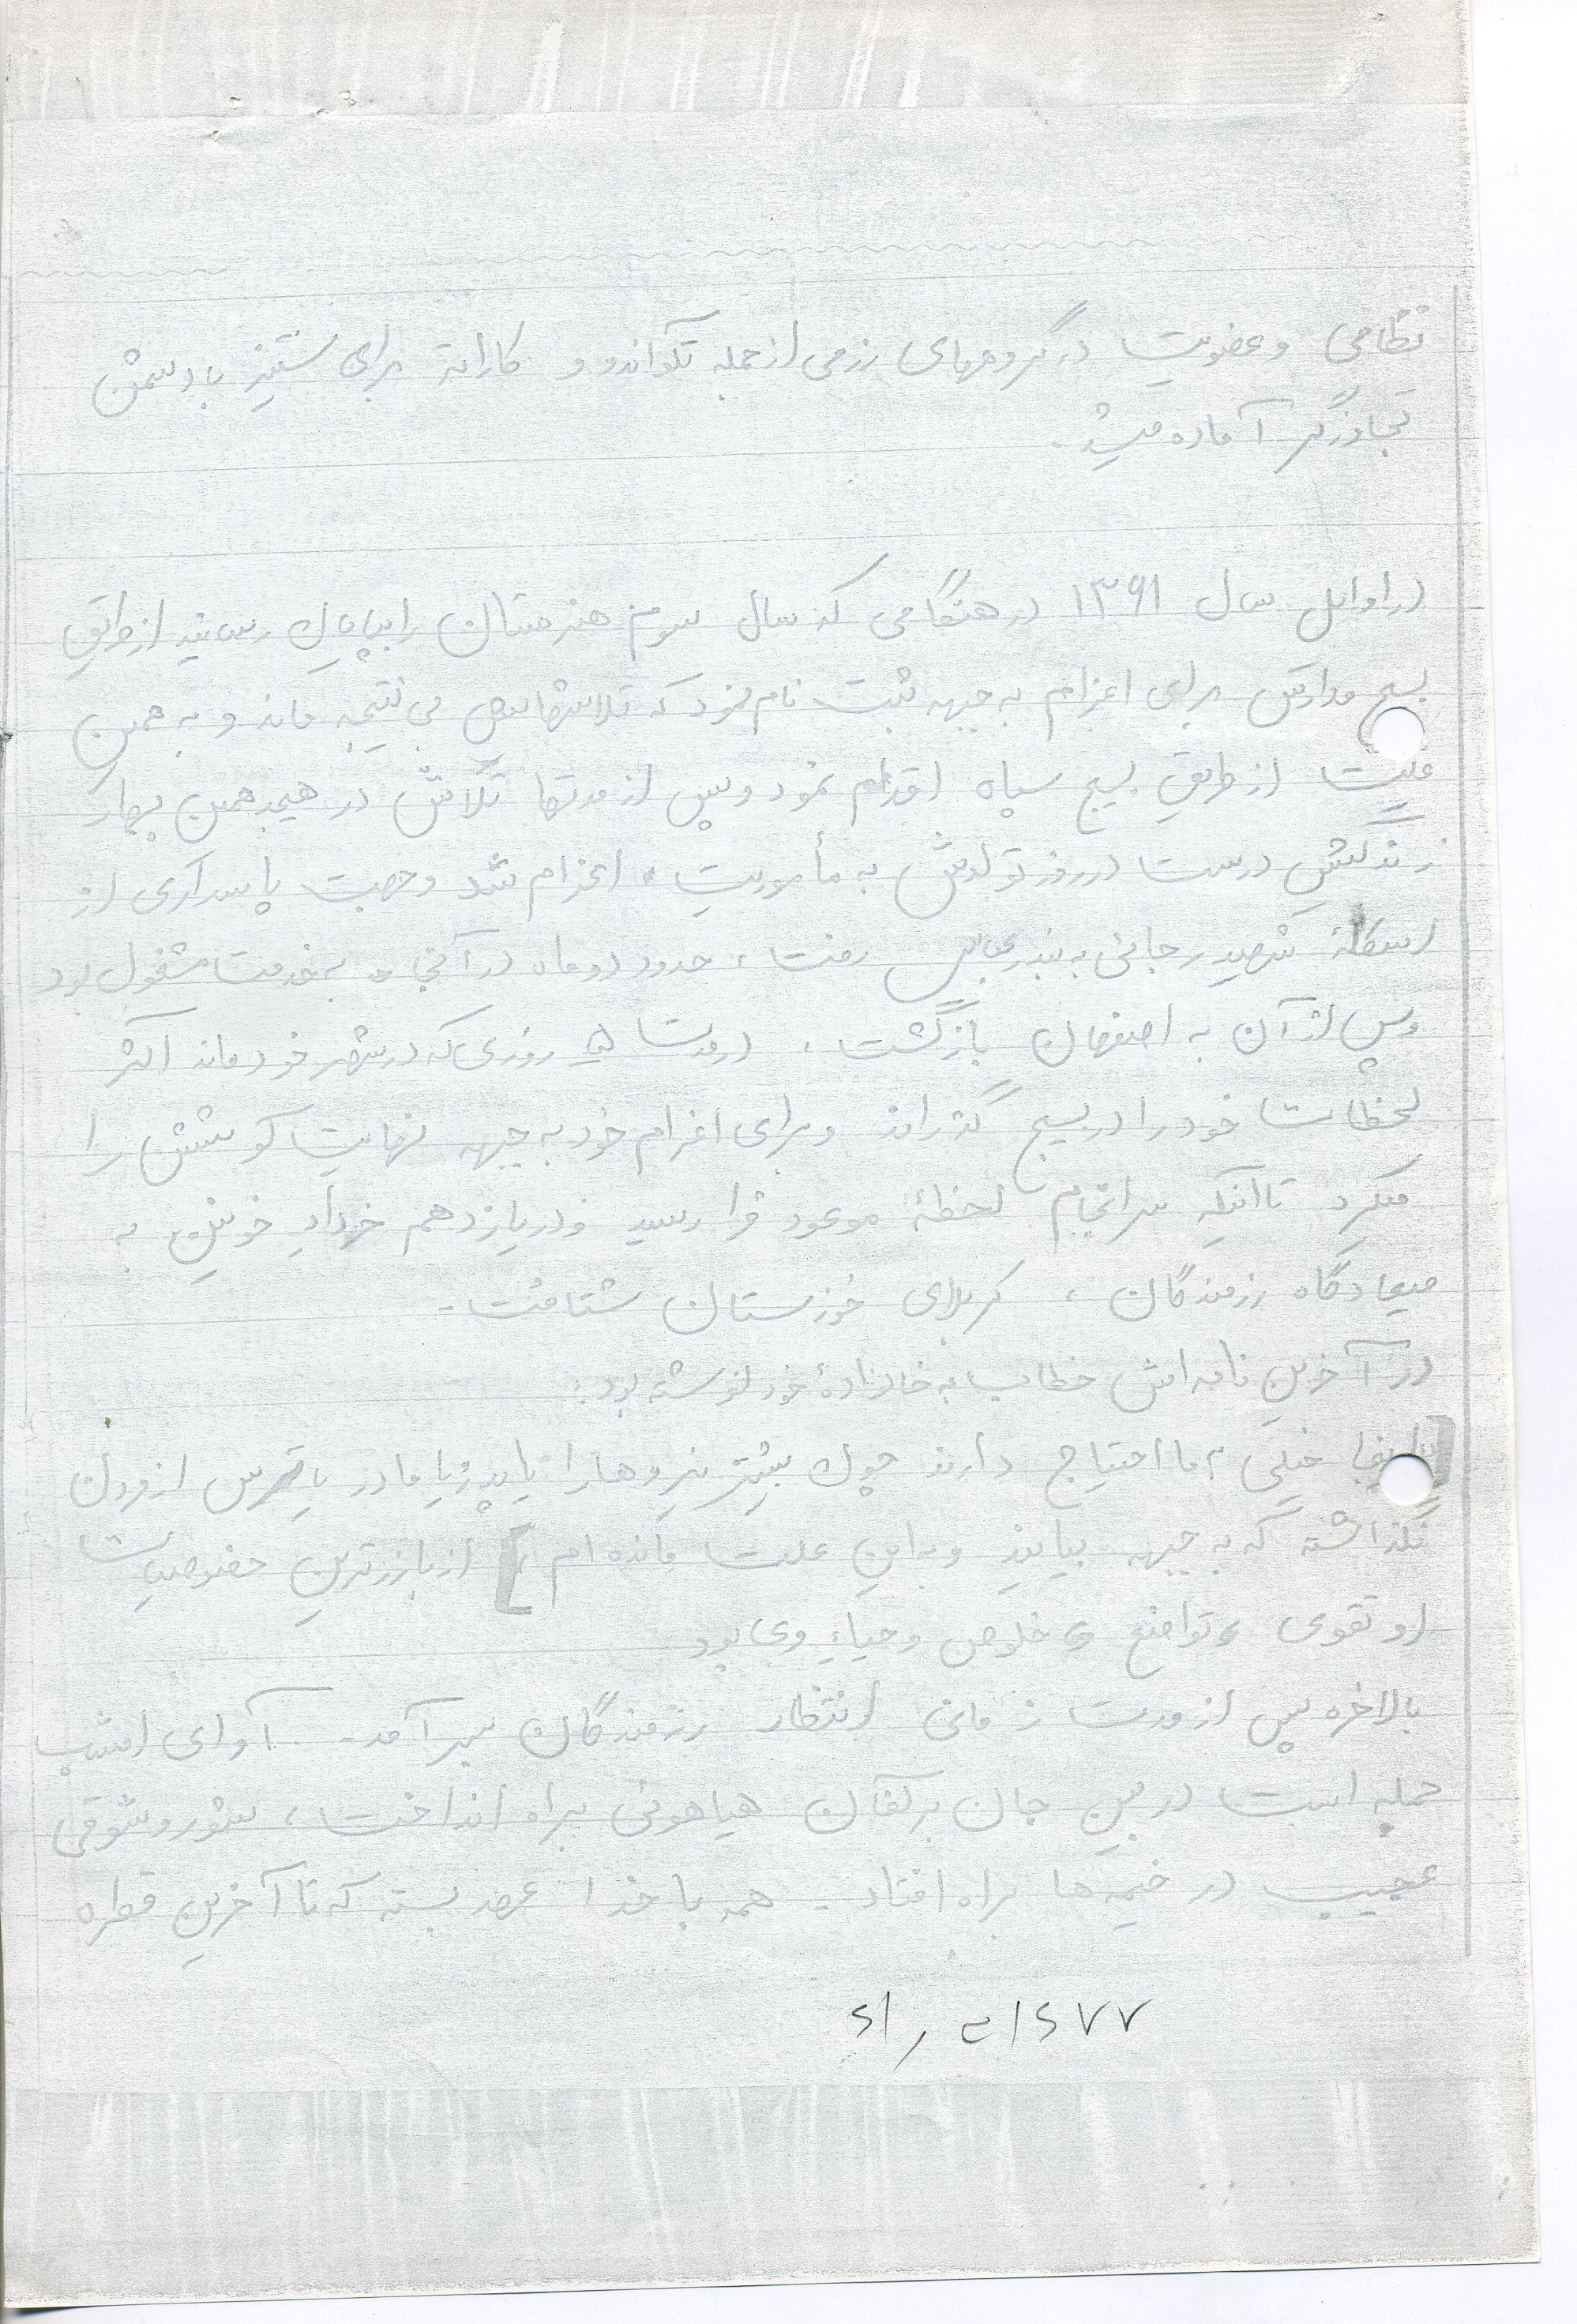 نظامی و عضویت در گروههای رزمی از جمله تکواندو و کاراته برای ستیز با دشمن
تجاوزگر آماده میشد.
در اوایل سال ۱۳۶۱ در هنگامی که سال سوم هنرستان را بپایان رسانید از طریق
بسیج مدارس برای اعزام به جبهه ثبت نام نمود که تلاشهایش بی نتیجه ماند و به همین
علت از طریق بسیج سپاه اقدام نمود و پس از مدتها تلاش در هیجدهمین بهار
زندگیش درست در روز تولدش به مأموریت اعزام شد و جهت پاسداری از
اسکلهٔ شهید رجائی به بندرعباس رفت، حدود دو ماه در آنجا به خدمت مشغول بود
و پس از آن به اصفهان بازگشت، در مدت ۵ روزی که در شهر خود ماند اکثر
لحظات خود را در بسیج گذراند و برای اعزام خود به جبهه نهایت کوشش را
میکرد تا اینکه سرانجام لحظهٔ موعود فرا رسید و در یازدهم خرداد خونین به
میعادگاه رزمندگان، کربلای خوزستان شتافت.
در آخرین نامه اش خطاب به خانوادهٔ خود نوشته بود:
[اینجا خیلی به ما احتیاج دارند چون بیشتر نیروها را یا پدر یا مادر یا ترس از مردن
نگذاشته که به جبهه بیایند و به این علت مانده ام] از بارزترین خصوصیات
او تقوی و تواضع و خلوص و حیاءِ وی بود
بالاخره پس از مدت زمانی انتظار رزمندگان سر آمد. آوای امشب
حمله است در بین جان برکفان هیاهوئی براه انداخت، شور و شوقی
عجیب در خیمه ها براه افتاد. همه با خدا عهد بسته که تا آخرین قطره